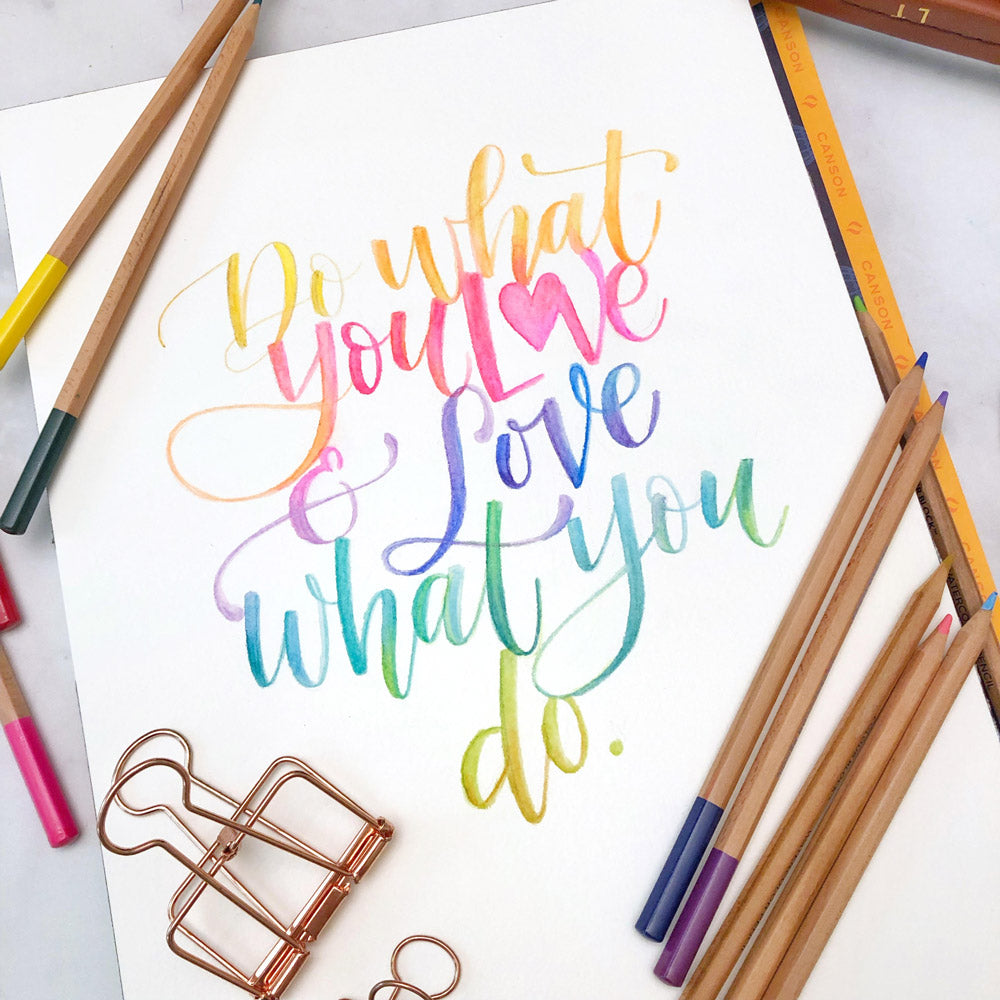 Do what
you Love
& Love
what you
do.
CANSON
CANSON
CANSON
CANSON